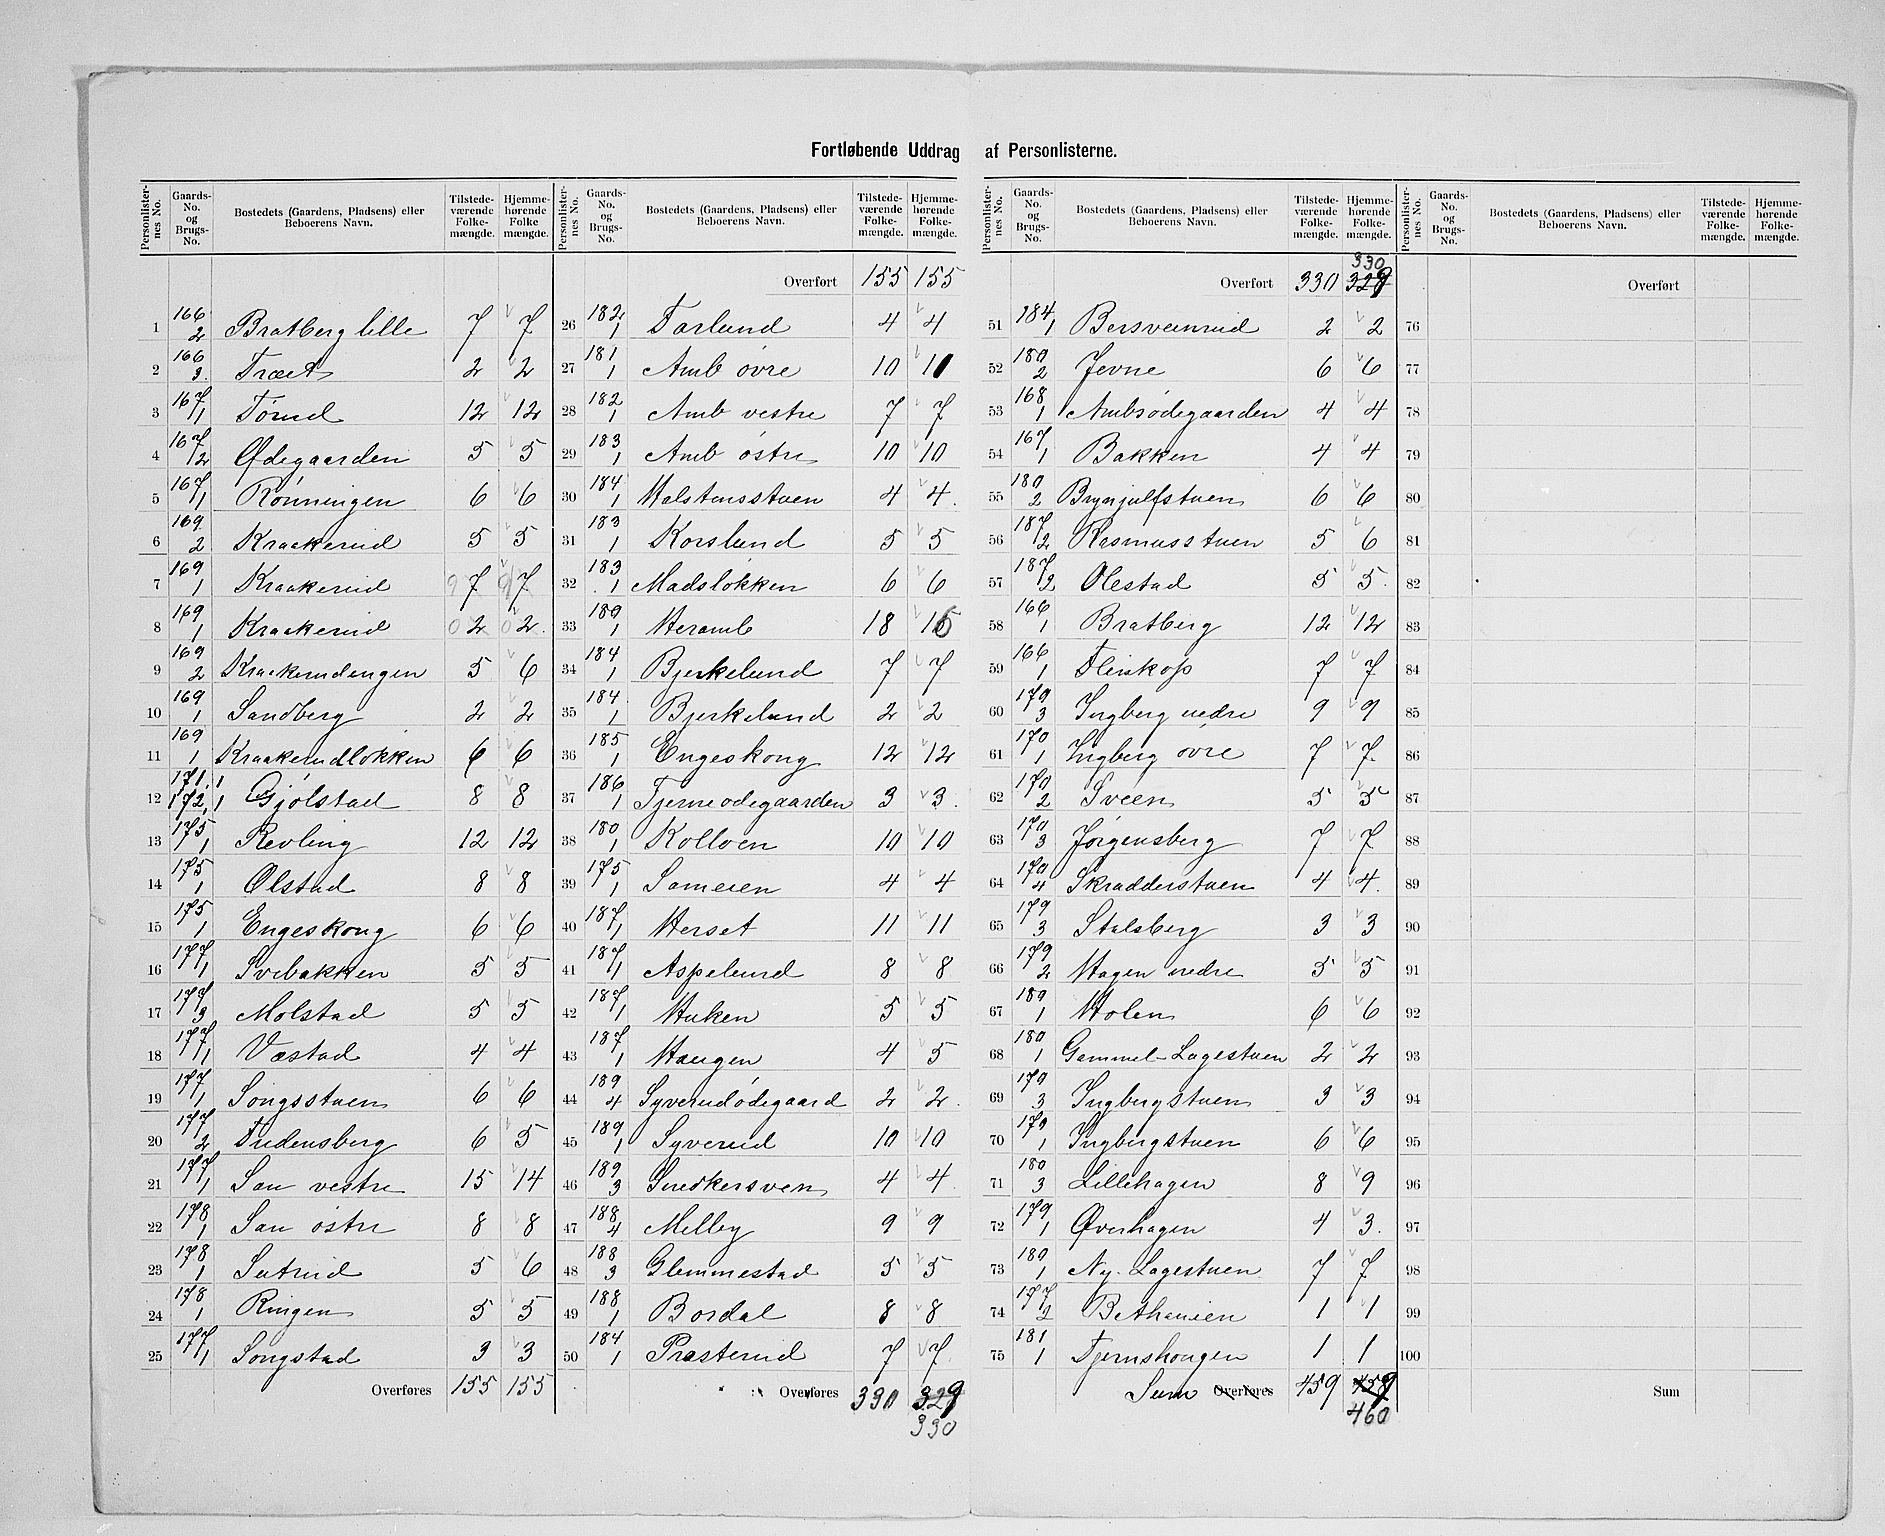 Fortløbende Uddrag af Personlisterne.
Personlister-nes No. | Gaards-No. og Brugs-No. | Bostedets (Gaardens, Pladsens) eller Beboerens Navn. | Tilstede-værende Folke-mængde. | Hjemme-hørende Folke mængde.
1 166/2 Bratberg lille 7 7
2 166/3 Træet 2 2
3 167/1 Tørud 12 12
4 167/2 Ødegaarden 5 5
5 167/1 Rønningen 6 6
6 169/2 Kraakerud 5 5
7 169/1 Kraakerud 7 7
8 169/1 Kraakerud 2 2
9 169/2 Kraakerudengen 5 6
10 169/1 Sandberg 2 2
11 169/1 Kraakerudløkken 6 6
12 171,1 172,1 Gjølstad 8 8
13 175/1 Revling 12 12
14 175/1 Ølstad 8 8
15 175/1 Engeskong 6 6
16 177/1 Svebakken 5 5
17 177/3 Molstad 5 5
18 177/1 Væstad 4 4
19 177/1 Songsstuen 6 6
20 177/2 Fredensberg 6 5
21 177/1 San vestre 15 14
22 178/1 San østre 8 8
23 178/1 Sutrud 5 6
24 178/1 Ringen 5 5
25 177/1 Songstad 3 3
Overføres 155 155
Personlister-nes No. | Gaards-No. og Brugs-No. | Bostedets (Gaardens, Pladsens) eller Beboerens Navn. | Tilstede-værende Folke-mængde. | Hjemme-hørende Folke-mængde.
Overført 155 155
26 182/1 Farlund 4 4
27 181/1 Amb øvre 10 10
28 182/1 Amb vestre 7 7
29 183/1 Amb østre 10 10
30 184/1 Halstensstuen 4 4
31 183/1 Korslund 5 5
32 183/1 Madsløkken 6 6
33 180/1 Heramb 18 16
34 184/1 Bjerkelund 7 7
35 184/1 Bjerkelund 2 2
36 185/1 Engeskong 12 12
37 186/1 Tjerneødegaarden 3 3
38 180/1 Kolloen 10 10
39 175/1 Sameien 4 4
40 187/1 Herset 11 11
41 187/1 Aspelund 8 8
42 187/1 Haken 5 5
43 187/1 Haugen 4 5
44 189/4 Syverudødegaard 2 2
45 189/1 Syverud 10 10
46 189/3 Snedkersven 4 4
47 188/4 Melby 9 9
48 188/3 Glemmestad 5 5
49 188/1 Bordal 8 8
50 184/1 Præsterud 7 7
Overføres 330 329
330
Personlister-nes No. | Gaards-No. og Brugs-No. | Bostedets (Gaardens, Pladsens) eller Beboerens Navn. | Tilstede-værende Folke-mængde. | Hjemme-hørende Folke-mængde.
330
Overført 330 329
51 184/1 Bersveinrud 2 2
52 180/2 Jevne 6 6
53 168/1 Ambsødegaarden 4 4
54 167/1 Bakken 4 4
55 180/2 Brynjulfstuen 6 6
56 187/2 Rasmusstuen 5 6
57 187/2 Olestad 5 5
58 166/1 Bratberg 12 12
59 166/1 Fleiskop 7 7
60 170/3 Ingberg nedre 9 9
61 170/1 Ingberg øvre 7 7
62 170/2 Sveen 5 5
63 170/3 Jørgensberg 7 7
64 170/4 Skradderstuen 4 4
65 179/3 Stalsberg 3 3
66 179/2 Hagen nedre 5 5
67 180/1 Holen 6 6
68 180/1 Gammel-Lagestuen 2 2
69 170/3 Ingbergstuen 3 3
70 170/1 Ingbergstuen 6 6
71 180/3 Lillehagen 8 9
72 179/1 Øverhagen 4 3
73 180/1 Ny-Lagestuen 7 7
74 177/2 Bethanien 1 1
75 181/1 Tjernshougen 1 1
Sum Overføres 459 459
460
Personlister-nes No. | Gaards-No. og Brugs-No. | Bostedets (Gaardens, Pladsens) eller Beboerens Navn. | Tilstede-værende Folke-mængde. | Hjemme-hørende Folke-mængde.
Overført
76
77
78
79
80
81
82
83
84
85
86
87
88
89
90
91
92
93
94
95
96
97
98
99
100
Sum